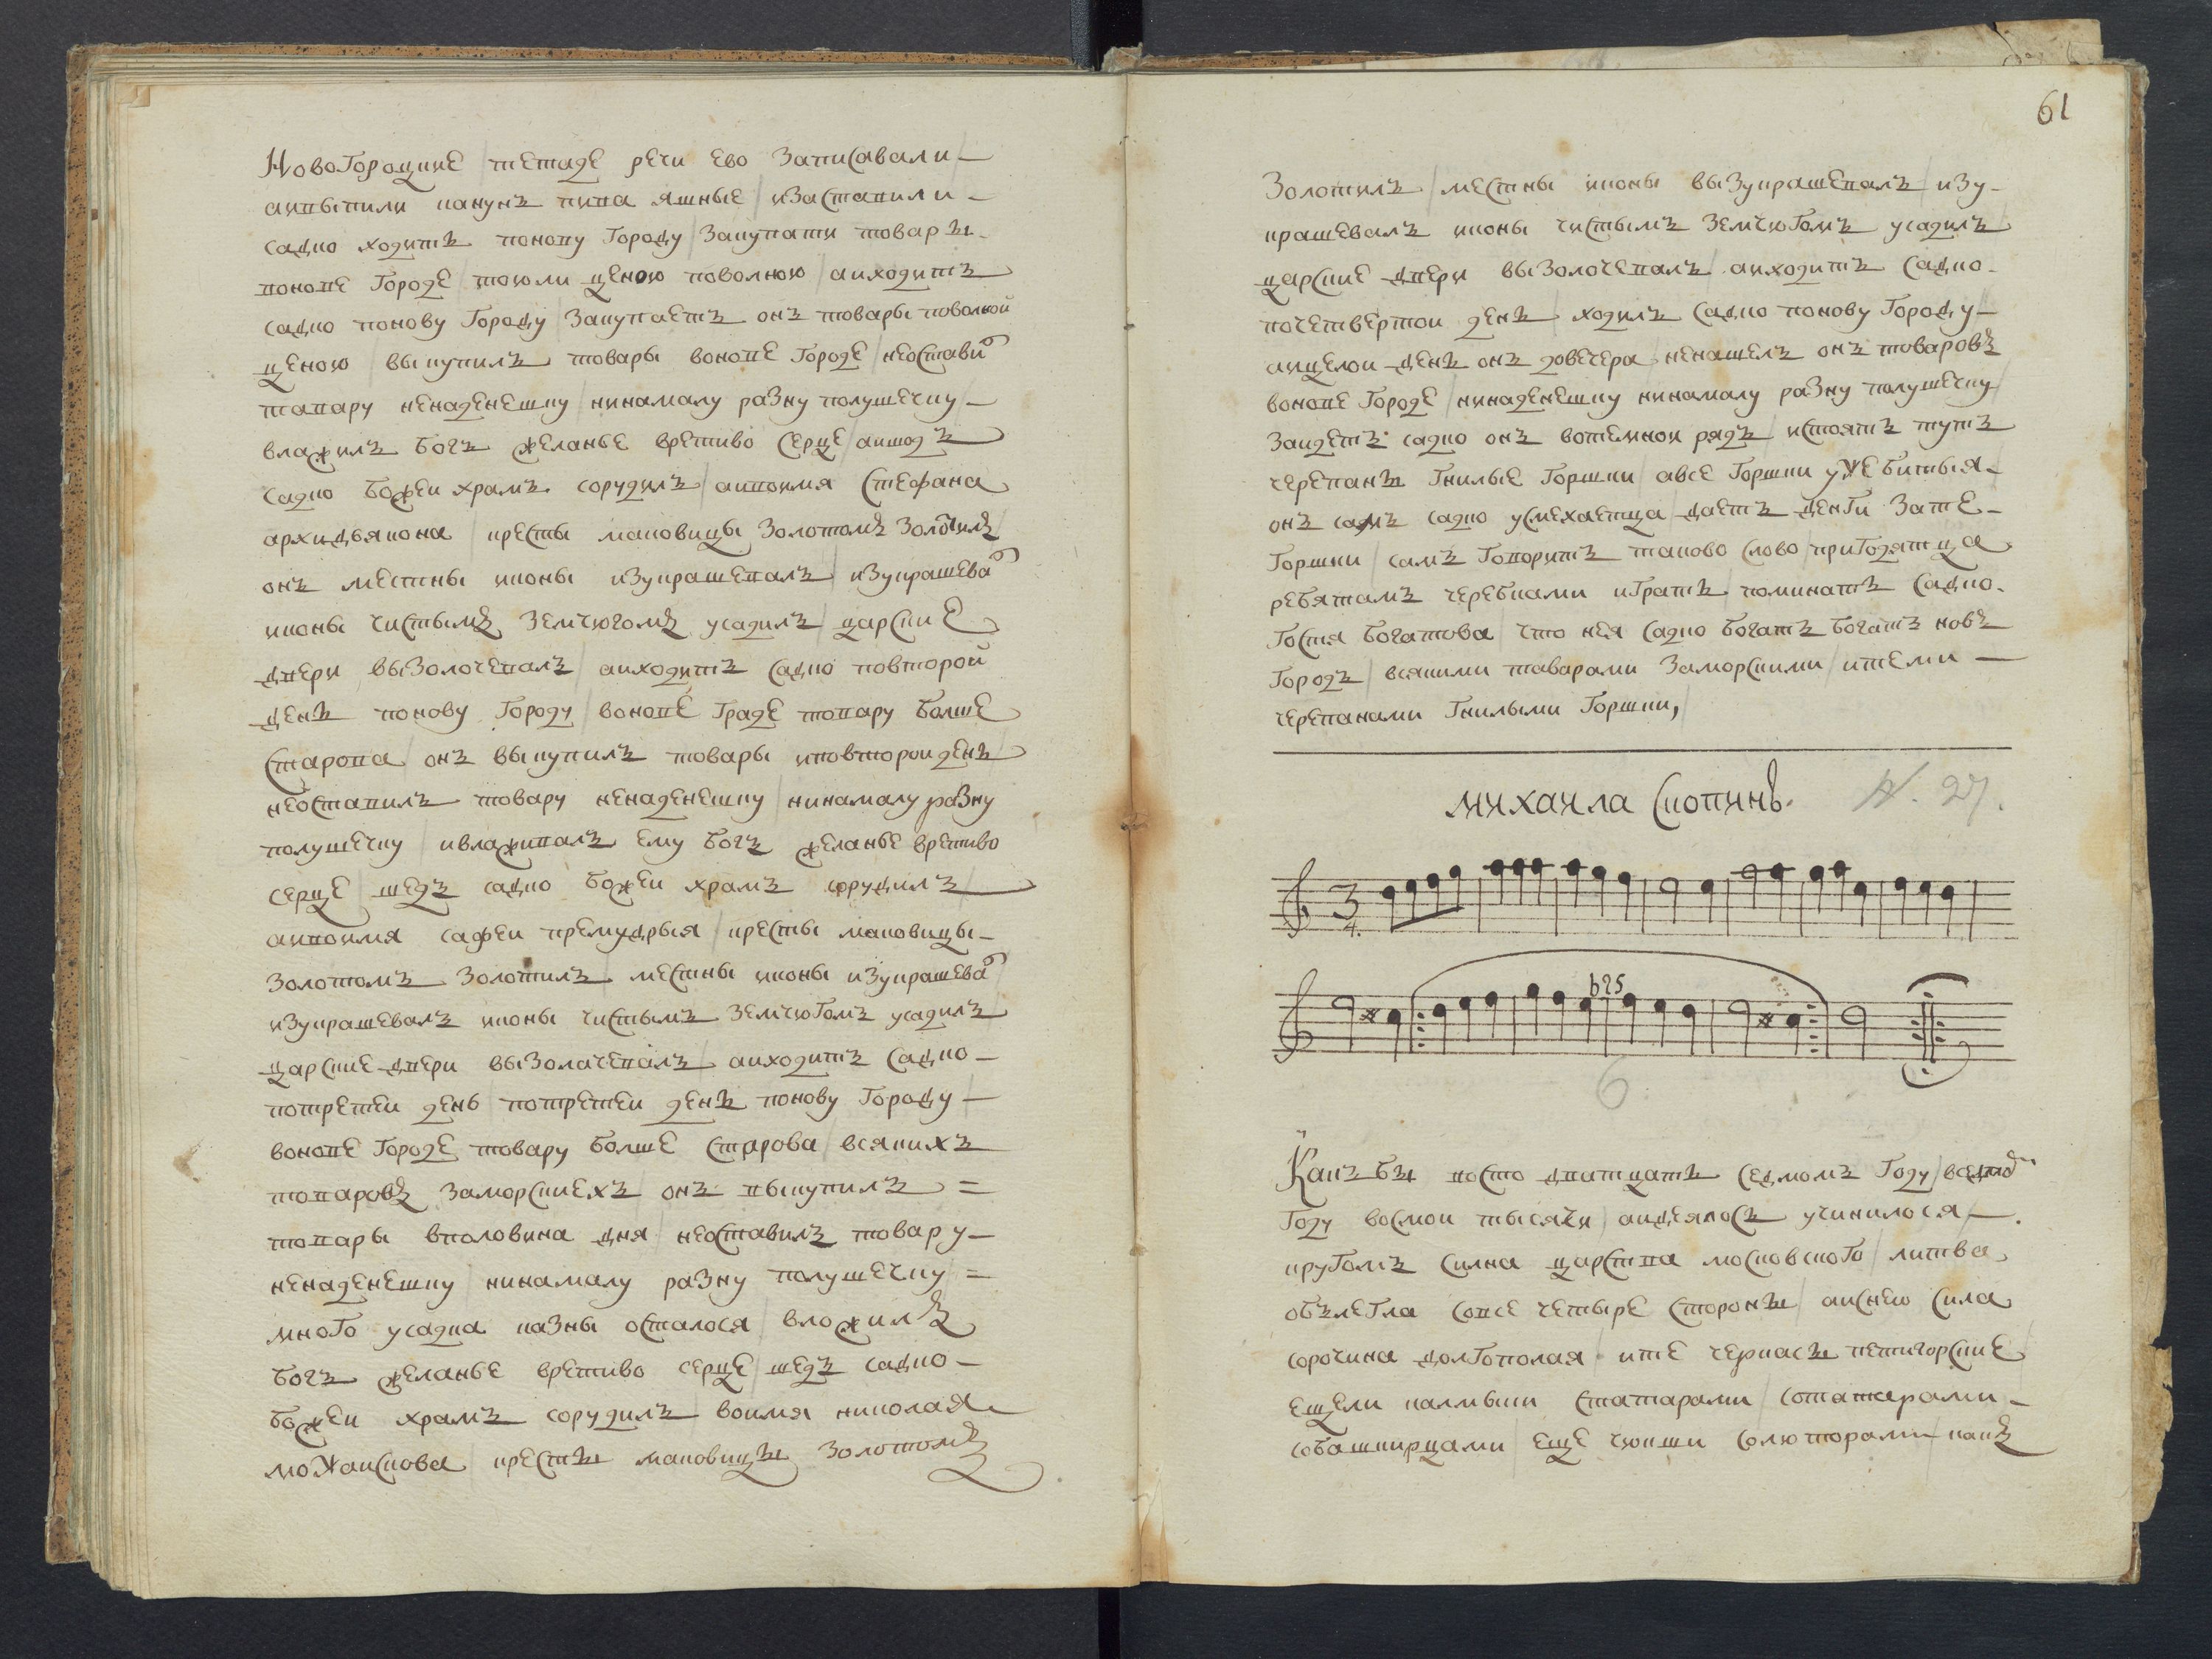 Новогородцкие / тетаде речи ево записавали /
аивыпили канунъ пива яшные / изаставили
садко ходить поновy городу / закупати товаръ
вонове городе / тоюли ценою поволною / аиходить
садко понову городу / закупаетъ онъ товары поволной
ценою / выкупилъ товары вонове городе / неоставил
товару ненаденешку / нинамалу разну полушечку
влажилъ богъ желанье вретиво серце / аишодъ
садко божеи храмъ сорудилъ / аивоимя стефана
архидьякона / кресты маковицы золотомъ золотилъ
онъ местны иконы изукрашевалъ / изукрашевал
иконы чистымъ земчюгомъ усадилъ / царские
двери вызолочевалъ / аиходитъ садко повторой
день понову городу / вонове граде товару болше
старова / онъ выкупилъ товары иповторои день
неоставилъ товару ненаденешку / нинамалу разну
полушечку / ивлаживалъ ему богъ желанье вретиво
серце / шедъ садко божеи храмъ сорудилъ /
аивоимя сафеи премудрыя / кресты маковицы
золотомъ золотилъ местны иконы изукрашевал
изукрашевалъ иконы чистымъ земчюгомъ усадилъ
царские двери вызолачевалъ / аиходитъ садко
потретеи день / потретеи день понову городу /
вонове городе товару болше старова / всякихъ
товаровъ заморскиехъ / онъ выкупилъ
товары вполовина дня / неоставилъ товару
ненаденешку / нинамалу разну полушечку /
много усадка казны осталося / вложилъ
богъ желанье вретиво серце / шедъ садко
божеи храмъ сорудилъ / воимя николая
можаискова / кресты маковицы золотомъ
61
золотилъ / местны иконы вызукрашевалъ / изу-
крашевалъ иконы чистымъ земчюгомъ усадилъ
царские двери вызолочевалъ / аиходитъ садко
почетвертои день / ходилъ садко понову городу
аицелои день онъ довечера / ненашелъ онъ товаровъ
вонове городе / нинаденешку нинамалу разну полушечку /
заидетъ садко онъ вотемнои рядъ / истоятъ тутъ
черепаны гнилые горшки / авсе горшки уже битыя
онъ самъ садко усмехаетца / даетъ денги зате
горшки / самъ говоритъ таково слово / пригодятца
ребятамъ черебками играть / поминать садко
гостя богатова / что нея садко богатъ богатъ новъ
городъ / всякими таварами заморскими / итеми
черепанами гнилыми горшки,
михаила скопинъ. N. 27.
3
4.
b25
6
Какъ бы восто дватцать седмомъ году / вседмом
году восмои тысячи / аидеялось учинилося /
кругомъ силна царства московского / литва
облегла совсе четыре стороны / аиснею сила
сорочина долгополая ите черкасы петигорские
ещели калмыки статарами / сотатарами
собашкирцами / еще чюкши солюторами какъ